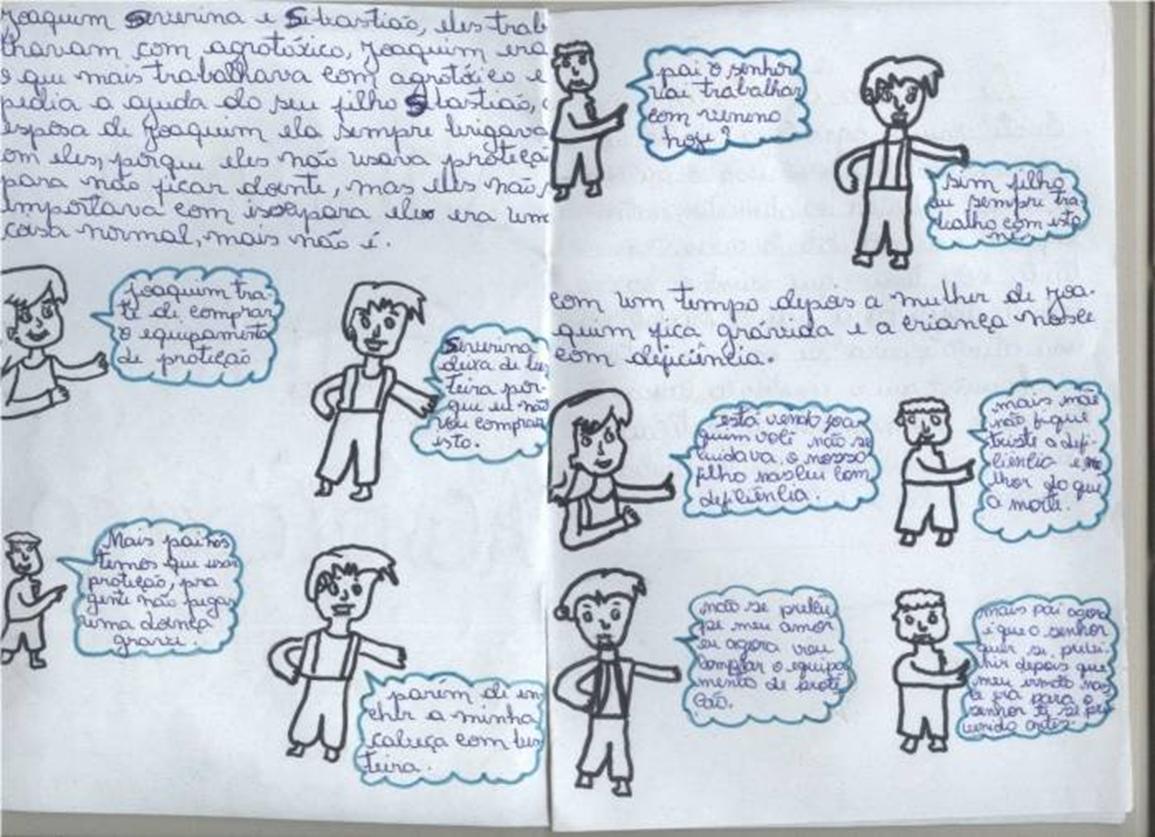 Joaquim Severina e Sebastião, eles traba
lhavam com agrotóxico, Joaquim era
o que mais trabalhava com agrotóxico e
pedia a ajuda do seu filho Sebastião, a
esposa de Joaquim ela sempre brigava
om eles, porque eles não usava proteçã
para não ficar doente, mas eles não
importava com iso para eles era um
coisa normal, mais não é.
Joaquim tra-
te de comprar
o equipamento
de proteção
Severina
deixa de bes
teira por-
que eu não
vou comprar
isto.
Mais pai nós
temos que usar
proteção, pra
gente não pegar
uma doença
grave.
parém de en
cher a minha
cabeça com bes
teira.
pai o senhor
vai trabalhar
com veneno
hoje?
sim filho
eu sempre tra
balho com isto
com um tempo depois a mulher de Joa-
quim fica grávida e a criança nasce
com deficiência.
está vendo Joa
quim você não se
cuidava, o nosso
filho nasceu com
deficiência.
mais mãe
não fique
triste a defi-
ciência é me
lhor do que
a morte.
não se preocu
pe meu amor
eu agora vou
comprar o equipa
mento de prote
ção.
mais pai agora
é que o senhor
quer si previ-
nir depois que
meu irmão nas
era para o
senhor te se pre
venido antes.